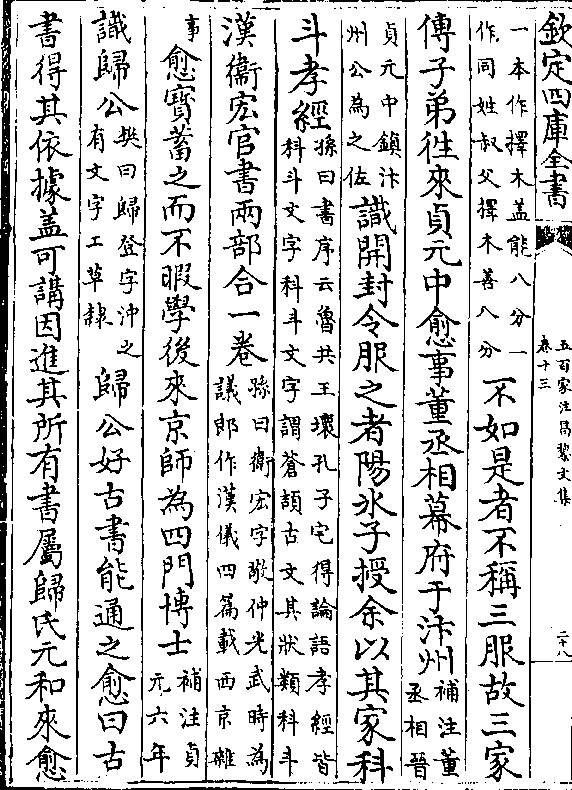 欽定四庫全書
五百家注昌黎文集
卷十三
二十八
一本作擇木蓋能八分一
作同姓叔父擇木善八分
不如是者不稱三服故三家
傳子弟徃來貞元中愈事董丞相幕府于汴州
補注董
丞相晉
貞元中鎮汴
州公為之佐
識開封令服之者陽氷子授余以其家科
斗孝經
孫曰書序云魯共王壞孔子宅得論語孝經皆
科斗文字科斗文字謂蒼頡古文其狀類科斗
漢衞宏官書兩部合一卷
孫曰衞宏字敬仲光武時為
議郎作漢儀四篇載西京雜
事
愈寳蓄之而不暇學後來京師為四門博士
補注貞
元六年
識歸公
樊曰歸登字沖之
有文字工草隸
歸公好古書能通之愈曰古
書得其依據蓋可講因進其所有書屬歸氏元和來愈